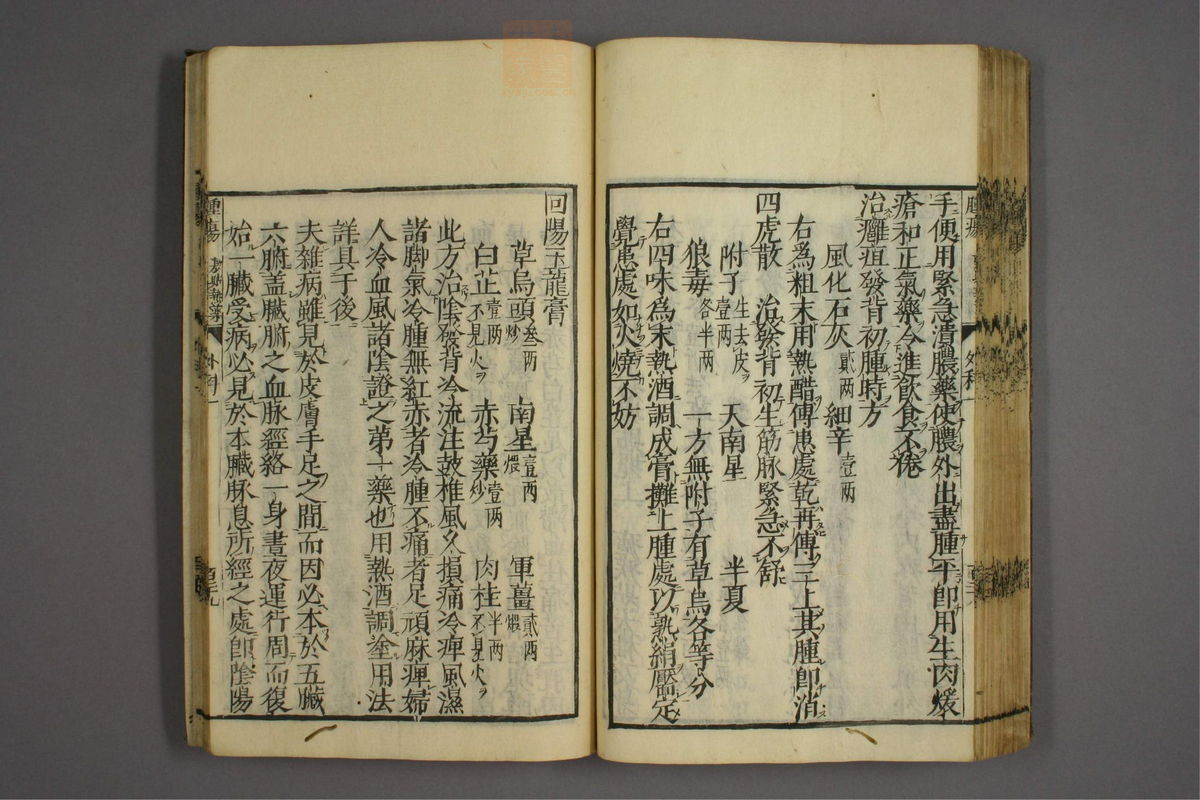 手便用緊急潰膿藥使膿外出盡腫平即用生肉煖
瘡和正氣藥令進飲食不倦
治癰疽發背初腫時方
風化石灰貳兩 細辛壹兩
右為粗末用熱醋傅患處乾再傅三上其腫即消
四虎散 治發背初生筋脉緊急不舒
附子生去皮壹兩 天南星 半夏
狼毒各半兩 一方無附子有草烏各等分
右四味為末熱酒調成膏攤上腫處以熟絹壓定
覺患處如火燒不妨
回陽玉龍膏
草烏頭叁兩炒 南星壹兩煨 軍薑貳兩煨
白芷壹兩不見火ヲ 赤芍藥壹兩炒 肉桂半兩不見火ヲ
此方治陰發背冷流注鼓椎風久損痛冷痺風濕
諸脚氣冷腫無紅赤者冷腫不痛者足頑麻痺婦
人冷血風諸陰證之第一藥也用熱酒調塗用法
詳具于後
夫雜病雖見於皮膚手足之間而因必本於五臟
六腑蓋臟腑之血脉經絡一身晝夜運行周而復
始一臟受病必見於本臟脉息所經之處卽陰陽